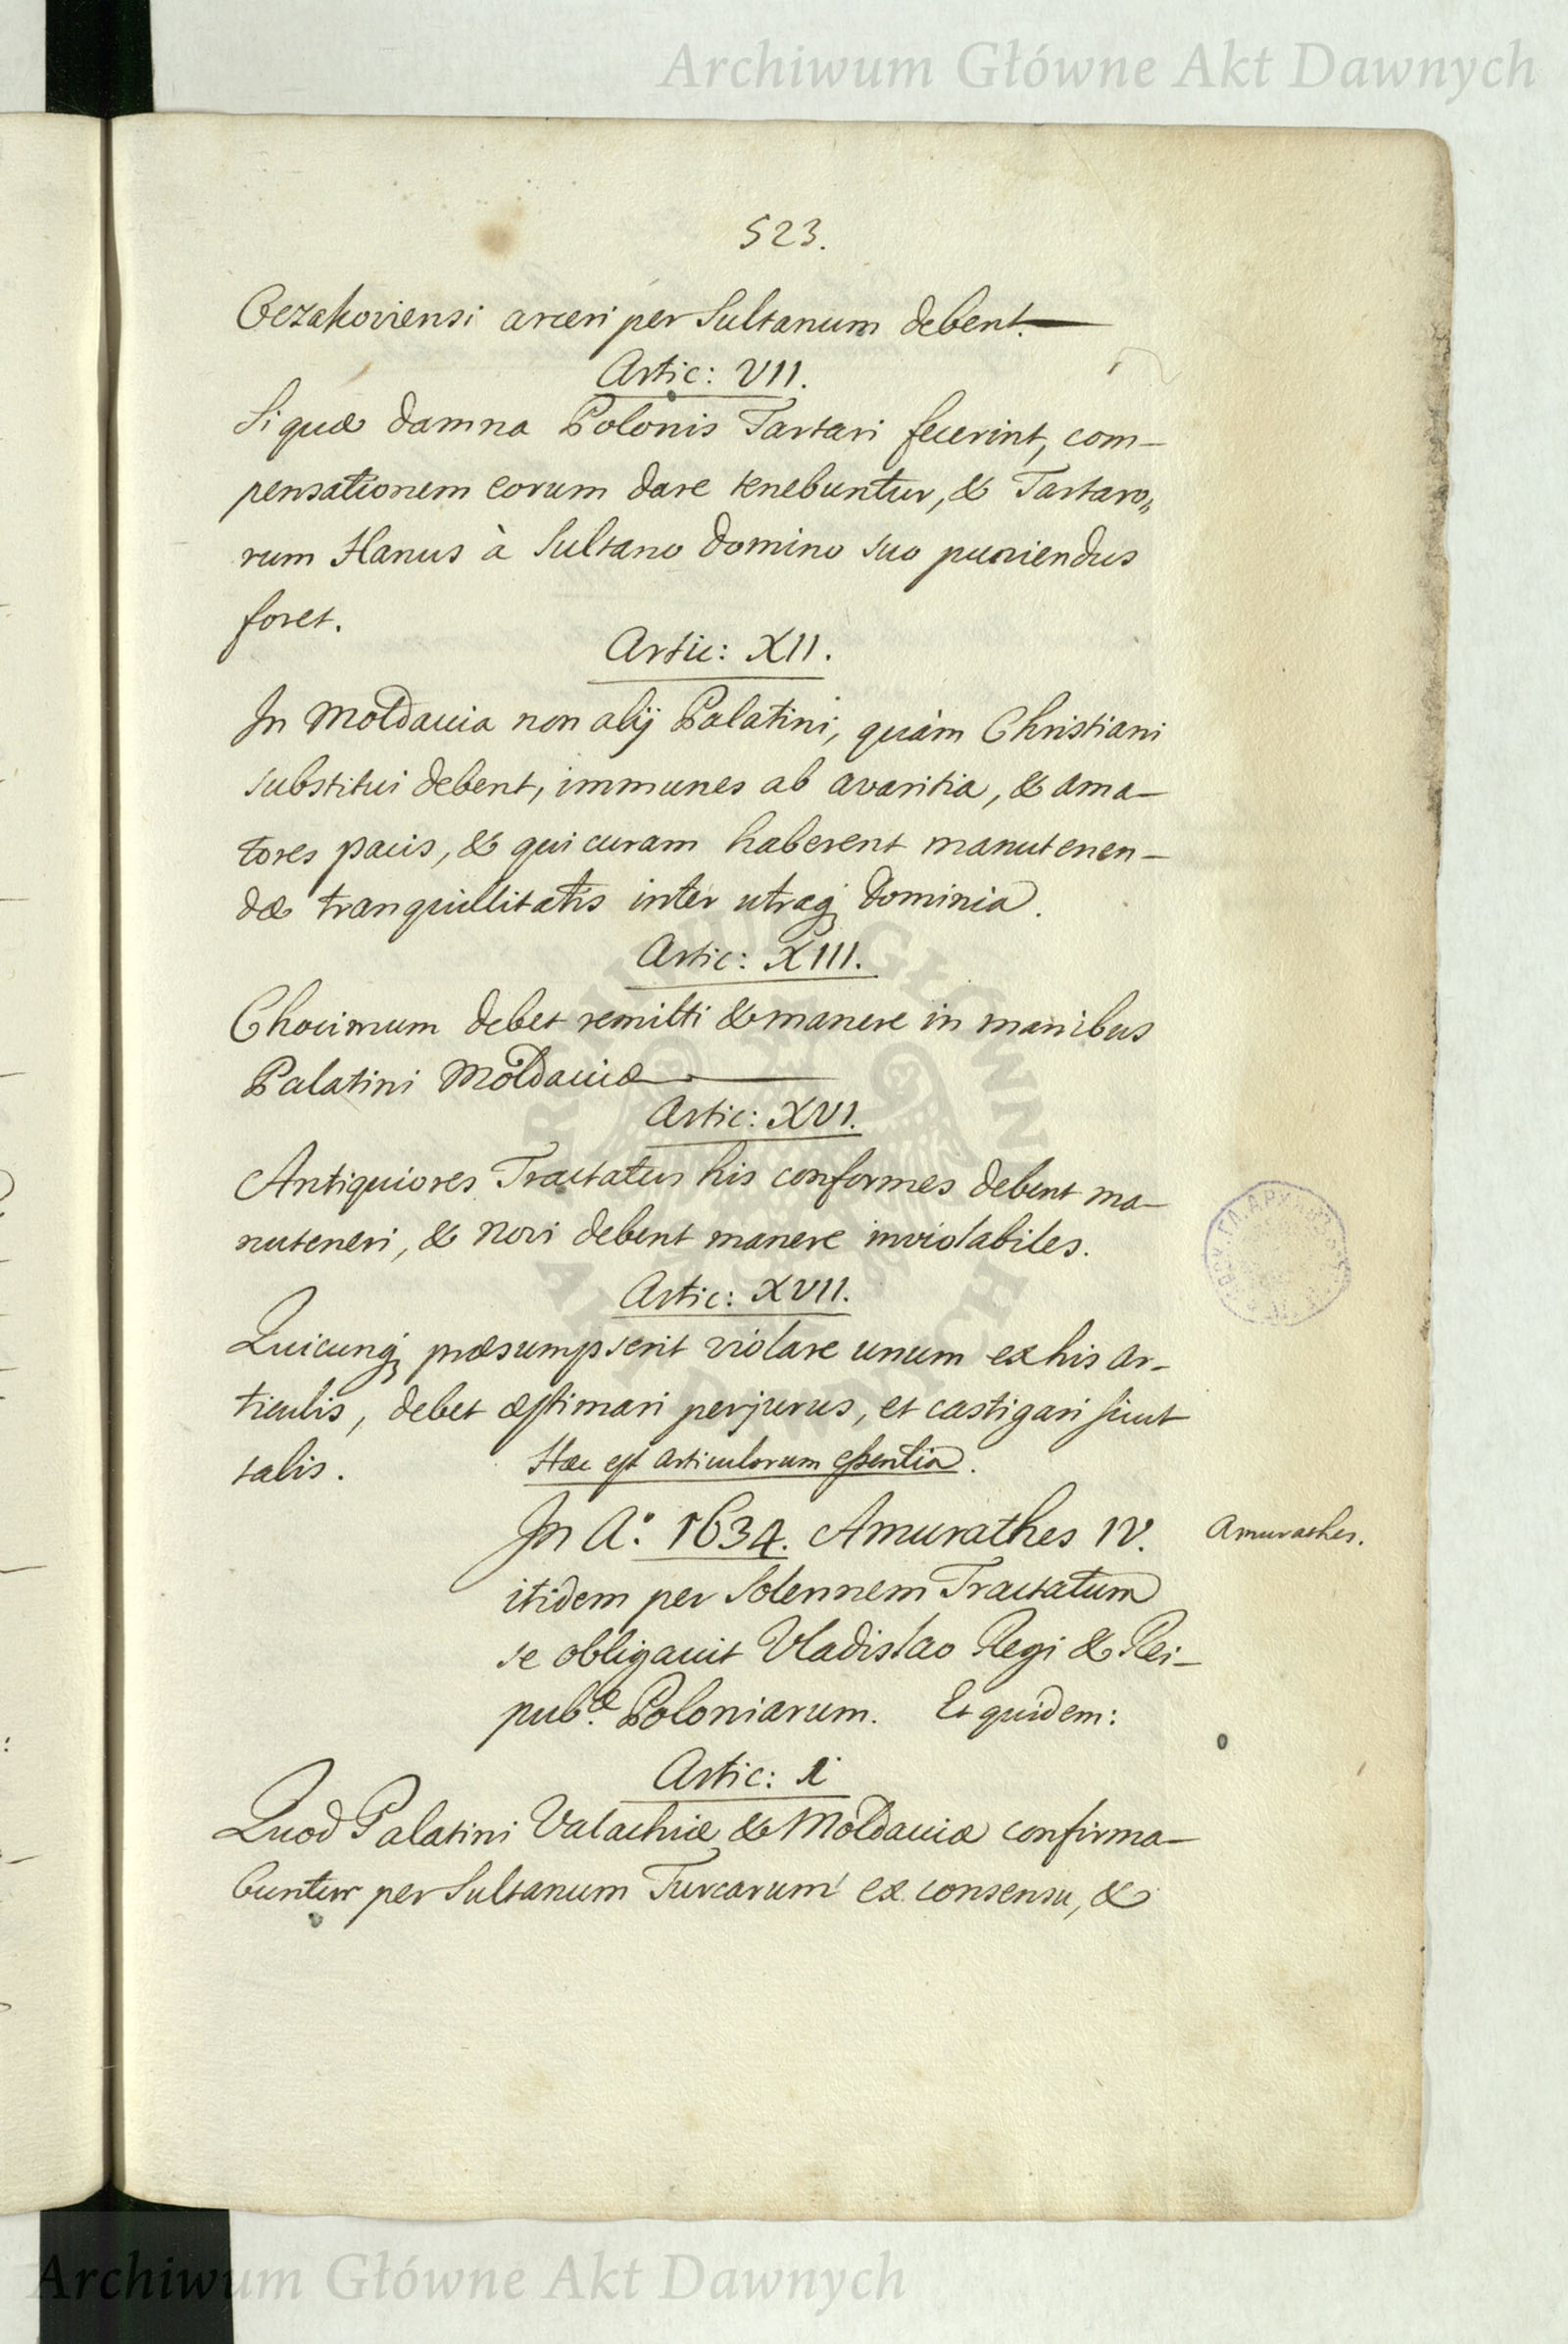 Archiwum Główne Akt Dawnych
523.
Oezakoviensi arceri per Sultanum debent.
Artic: VII.
Si quæ damna Polonis Tartari fecerint, com-
pensationem eorum dare tenebuntur, & Tartaro„
rum Hanus à Sultano Domino suo puniendus
foret.
Artic: XII.
In Moldauia non alij Palatini, quàm Christiani
substitui debent, immunes ab avaritia, & ama-
tores pacis, & qui curam haberent manutenen-
dæ tranquillitatis inter utraq; Dominia.
Artic: XIII.
Chocimum debet remitti & manere in manibus
Palatini Moldauiæ
Artic: XVI.
Antiquiores Tractatus his conformes debent ma-
nuteneri, & novi debent manere inviolabiles.
Artic: XVII.
Quicunq; præsumpserit violare unum ex his ar-
ticulis, debet æstimari perjurus, et castigari sicut
talis.
Hæc est articulorum essentia.
In A.º 1634. Amurathes IV.
Amurathes.
itidem per Solennem Tractatum
se obligauit Vladislao Regi & Rei-
pub.æ Poloniarum. Et quidem:
Artic: I
Quod Palatini Valachiæ & Moldauiæ confirma-
buntur per Sultanum Turcarum ex consensu, &
Archiwum Główne Akt Dawnych